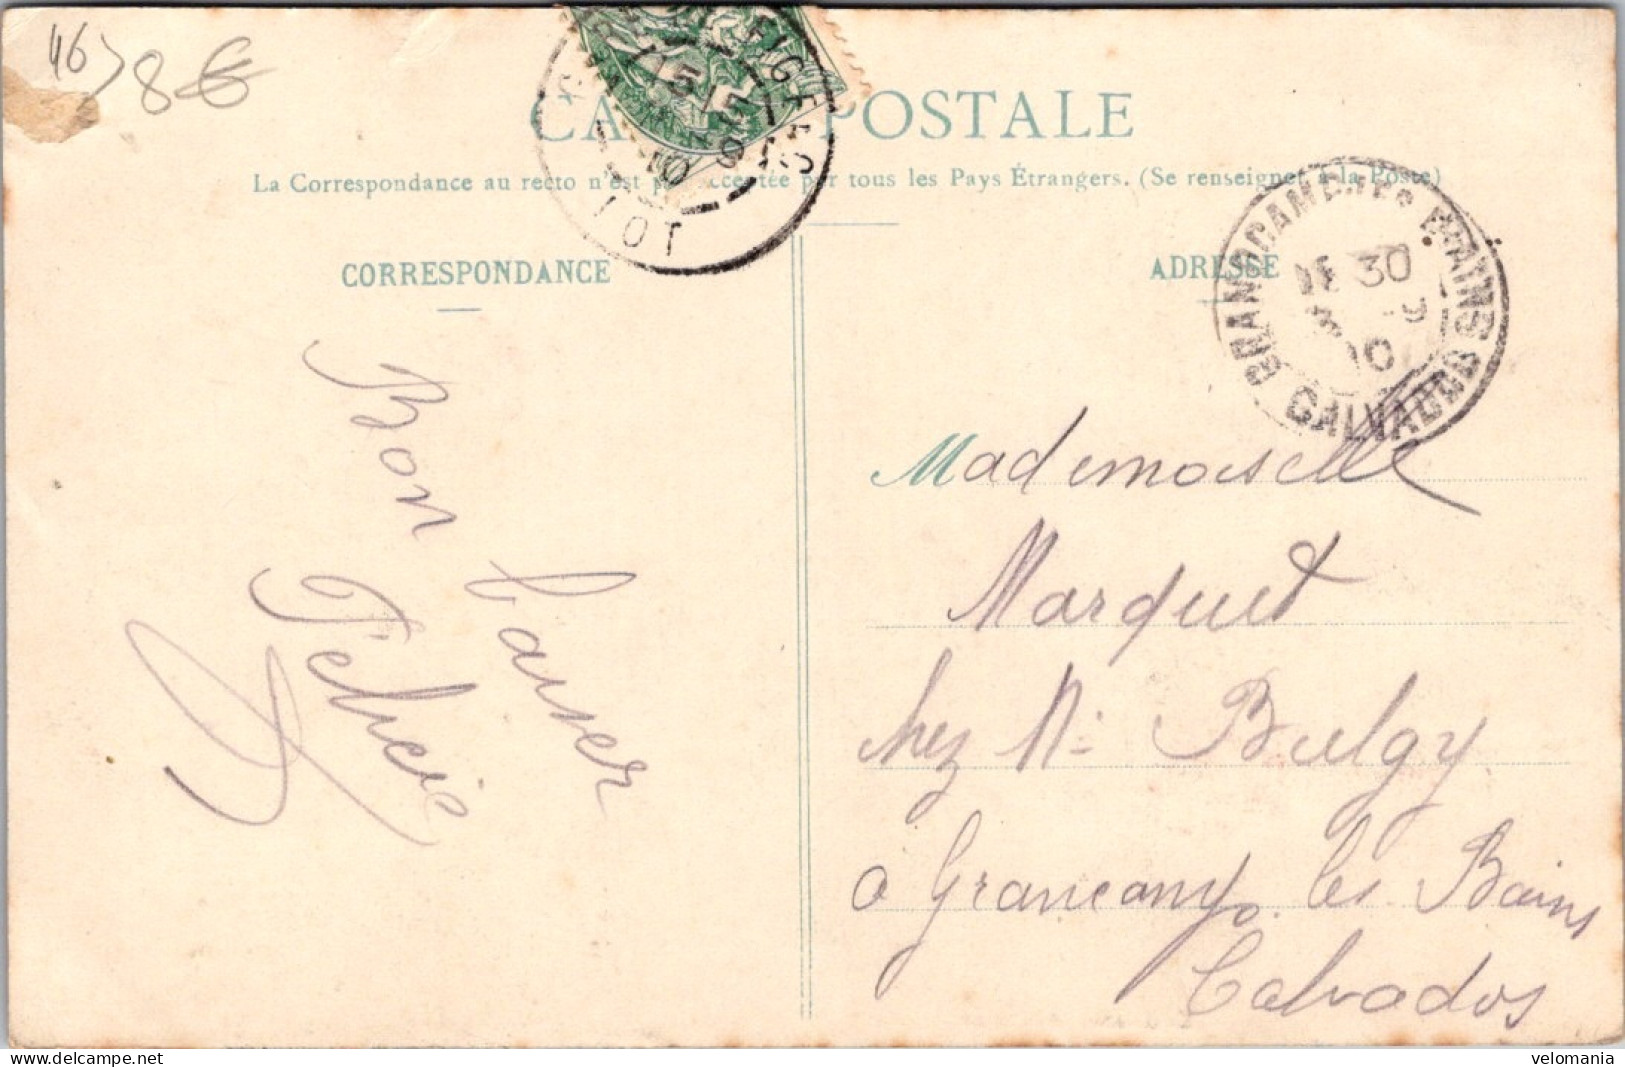 46 8€
CARTE POSTALE
La Correspondance au recto n'est pas acceptée par tous les Pays Étrangers. (Se renseigner à la Poste)
CORRESPONDANCE
ADRESSE
FIGEAC
15 5
9
10
LOT
GRANDCAMP-LES-BAINS
18 30
9
10
CALVADOS
Bon baiser
Félicie
Mademoiselle
Marquet
chez Mr Bulgy
à Grancamp les Bains
Calvados
velomania